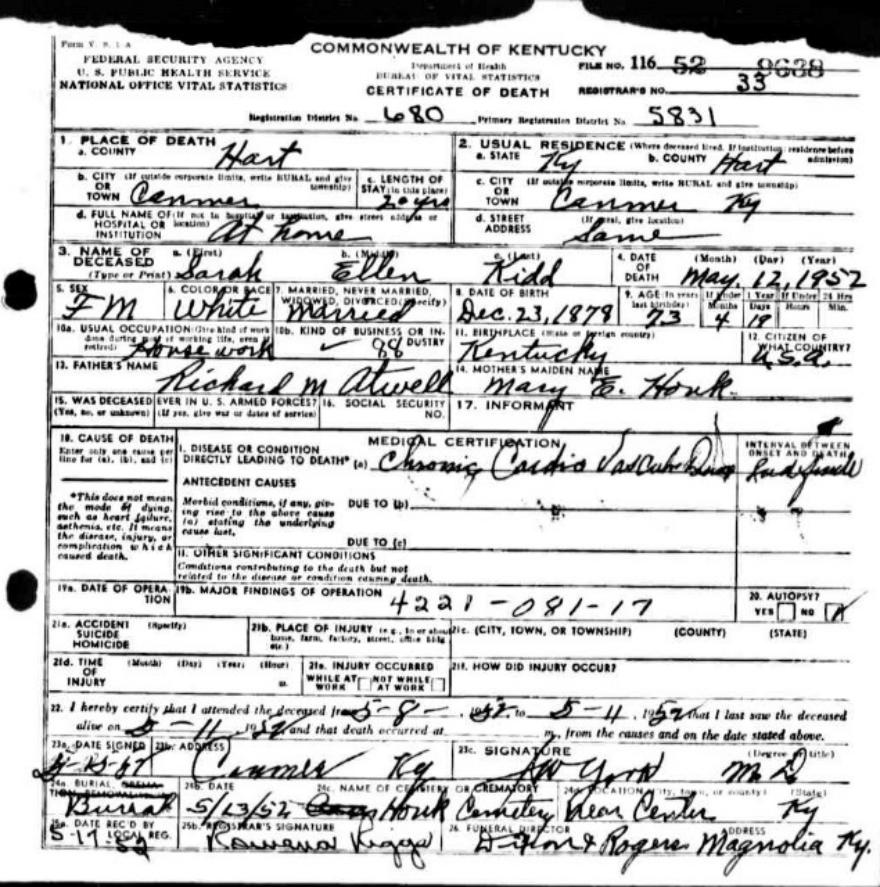 Form V. S. 1-A
COMMONWEALTH OF KENTUCKY
FEDERAL SECURITY AGENCY
U. S. PUBLIC HEALTH SERVICE
NATIONAL OFFICE VITAL STATISTICS
Department of Health
BUREAU OF VITAL STATISTICS
CERTIFICATE OF DEATH
FILE NO. 116 52 9638
REGISTRAR'S NO. 33
Registration District No. 680 Primary Registration District No. 5831
1. PLACE OF DEATH
a. COUNTY Hart
2. USUAL RESIDENCE (Where deceased lived. If institution: residence before admission)
a. STATE Ky b. COUNTY Hart
b. CITY (If outside corporate limits, write RURAL and give township)
OR
TOWN Canmer
c. LENGTH OF
STAY (in this place)
20 yrs
c. CITY (If outside corporate limits, write RURAL and give township)
OR
TOWN Canmer Ky
d. FULL NAME OF (If not in hospital or institution, give street address or location)
HOSPITAL OR
INSTITUTION At home
d. STREET (If rural, give location)
ADDRESS Same
3. NAME OF DECEASED
(Type or Print)
a. (First) b. (Middle) c. (Last)
Sarah Ellen Kidd
4. DATE OF DEATH (Month) (Day) (Year)
May. 12, 1952
5. SEX
FM
6. COLOR OR RACE
White
7. MARRIED, NEVER MARRIED,
WIDOWED, DIVORCED (Specify)
Married
8. DATE OF BIRTH
Dec. 23, 1878
9. AGE (In years last birthday)
73
If Under 1 Year
Months Days
4 19
If Under 24 Hrs
Hours Min.
10a. USUAL OCCUPATION (Give kind of work done during most of working life, even if retired)
House work
10b. KIND OF BUSINESS OR INDUSTRY
88
11. BIRTHPLACE (State or foreign country)
Kentucky
12. CITIZEN OF WHAT COUNTRY?
U.S.A.
13. FATHER'S NAME
Richard M Atwell
14. MOTHER'S MAIDEN NAME
Mary E. Houk.
15. WAS DECEASED EVER IN U. S. ARMED FORCES?
(Yes, no, or unknown) (If yes, give war or dates of service)
16. SOCIAL SECURITY NO.
17. INFORMANT
18. CAUSE OF DEATH
Enter only one cause per
line for (a), (b), and (c)
MEDICAL CERTIFICATION
INTERVAL BETWEEN
ONSET AND DEATH
I. DISEASE OR CONDITION
DIRECTLY LEADING TO DEATH* (a) Chronic Cardio Vascular
ANTECEDENT CAUSES
*This does not mean
the mode of dying,
such as heart failure,
asthenia, etc. It means
the disease, injury, or
complication which
caused death.
Morbid conditions, if any, giving rise to the above cause
(a) stating the underlying
cause last.
DUE TO (b)
DUE TO (c)
II. OTHER SIGNIFICANT CONDITIONS
Conditions contributing to the death but not
related to the disease or condition causing death.
19a. DATE OF OPERATION
19b. MAJOR FINDINGS OF OPERATION
4221-081-17
20. AUTOPSY?
YES NO
21a. ACCIDENT (Specify)
SUICIDE
HOMICIDE
21b. PLACE OF INJURY (e.g., in or about home, farm, factory, street, office bldg etc.)
21c. (CITY, TOWN, OR TOWNSHIP) (COUNTY) (STATE)
21d. TIME (Month) (Day) (Year) (Hour)
OF
INJURY m.
21e. INJURY OCCURRED
WHILE AT WORK NOT WHILE AT WORK
21f. HOW DID INJURY OCCUR?
22. I hereby certify that I attended the deceased from 5-8-, 1952 to 5-11, 1952 that I last saw the deceased
alive on 5-11, 1952 and that death occurred at m., from the causes and on the date stated above.
23a. DATE SIGNED
23b. ADDRESS
Canmer Ky
23c. SIGNATURE (Degree or title)
York M.D
24a. BURIAL,
Burial
24b. DATE
5/13/52
24c. NAME OF CEMETERY OR CREMATORY
Houk Cemetery
24d. LOCATION (City, town, or county) (State)
Near Center Ky
25a. DATE REC'D BY LOCAL REG.
5-17-52
25b. REGISTRAR'S SIGNATURE
Rowena Riggs
26. FUNERAL DIRECTOR ADDRESS
Dixon & Rogers Magnolia Ky.